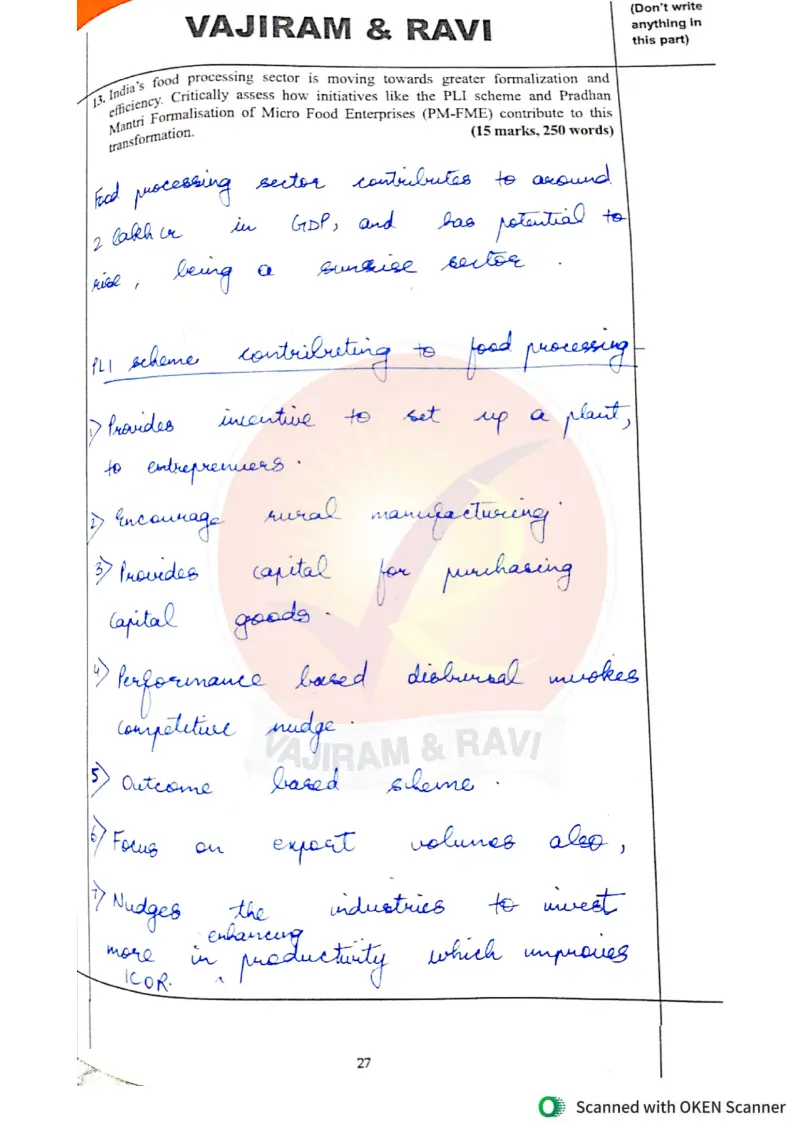 VAJIRAM & RAVI
(Don't write
anything in
this part)
13. India's food processing sector is moving towards greater formalization and
efficiency. Critically assess how initiatives like the PLI scheme and Pradhan
Mantri Formalisation of Micro Food Enterprises (PM-FME) contribute to this
transformation.
(15 marks, 250 words)
Food processing sector contributes to around
2 lakh cr in GDP, and has potential to
rise, being a sunrise sector.
PLI scheme contributing to food processing-
1) Provides incentive to set up a plant,
to entrepreneuers.
2) Encourage rural manufacturing.
3) Provides capital for purchasing
capital goods.
4) Performance based disbursal invokes
competitive nudge.
5) Outcome based scheme.
6) Focus on export volumes also,
7) Nudges the industries to invest
enhancing
more in productivity which improves
ICOR.
VAJIRAM & RAVI
27
Scanned with OKEN Scanner